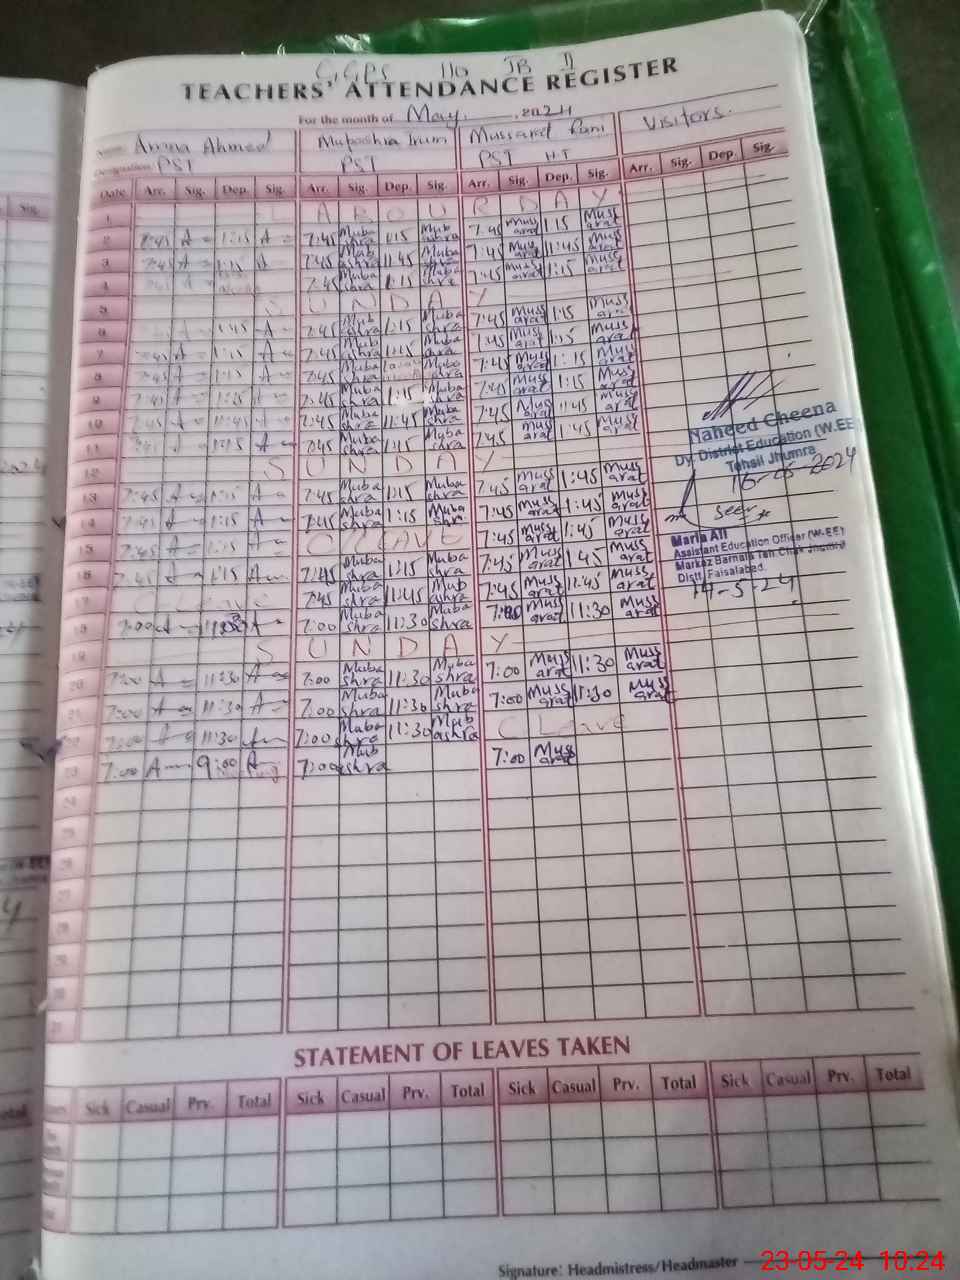 GGPS 110 JB II
TEACHERS' ATTENDANCE REGISTER
For the month of May 2024
Name Amna Ahmed Mubashra Irum Mussarat Rani Visitors
Designation PST PST PST H.T
Date Arr. Sig. Dep. Sig. Arr. Sig. Dep. Sig. Arr. Sig. Dep. Sig. Arr. Sig. Dep. Sig.
1 L A B O U R D A Y
2 7:45 A 1:15 A 7:45 Mubashra 1:15 Mubashra 7:45 Mussarat 1:15 Mussarat
3 7:45 A 1:15 A 7:45 Mubashra 11:45 Mubashra 7:45 Mussarat 11:45 Mussarat
4 7:45 Mubashra 1:15 Mubashra 7:45 Mussarat 1:15 Mussarat
5 S U N D A Y
6 1:45 A 7:45 Mubashra 1:15 Mubashra 7:45 Mussarat 1:15 Mussarat
7 7:45 A 1:15 A 7:45 Mubashra 1:15 Mubashra 7:45 Mussarat 1:15 Mussarat
8 7:45 A 1:15 A 7:45 Mubashra Mubashra 7:45 Mussarat 1:15 Mussarat
9 A 1:15 A 7:45 Mubashra 1:15 Mubashra 7:45 Mussarat 1:15 Mussarat
10 7:45 A 11:45 A 7:45 Mubashra 11:45 Mubashra 7:45 Mussarat 11:45 Mussarat
11 7:45 A 1:15 A 7:45 Mubashra 1:15 Mubashra 7:45 Mussarat 1:45 Mussarat
12 S U N D A Y
13 7:45 A 1:15 A 7:45 Mubashra 1:15 Mubashra 7:45 Mussarat 1:45 Mussarat
14 7:45 A 1:15 A 7:45 Mubashra 1:15 Mubashra 7:45 Mussarat 1:45 Mussarat
15 7:45 A 1:15 A C LEAVE 7:45 Mussarat 1:45 Mussarat
16 7:45 A 1:15 A 7:45 Mubashra 1:15 Mubashra 7:45 Mussarat 1:45 Mussarat
17 C Leave 7:45 Mubashra 11:45 Mubashra 7:45 Mussarat 11:45 Mussarat
18 7:00 A A 7:00 Mubashra 11:30 Mubashra 7:00 Mussarat 11:30 Mussarat
19 S U N D A Y
20 7:00 A 11:30 A 7:00 Mubashra 11:30 Mubashra 7:00 Mussarat 11:30 Mussarat
21 7:00 A 11:30 A 7:00 Mubashra 11:30 Mubashra 7:00 Mussarat 11:30 Mussarat
22 7:00 A 11:30 A 7:00 Mubashra 11:30 Mubashra C Leave
23 7:00 A 9:00 A 7:00 Mubashra 7:00 Mussarat
24
25
26
27
28
29
30
31
Naheed Cheena
Dy. District Education (W.EE)
Tehsil Jhumra
16-05-2024
seen
Maria Ali
Assistant Education Officer (W-EE)
Markaz Barnala Teh Chak Jhumra
Distt. Faisalabad.
14-5-24
STATEMENT OF LEAVES TAKEN
Sick Casual Prv. Total Sick Casual Prv. Total Sick Casual Prv. Total Sick Casual Prv. Total
Signature: Headmistress/Headmaster
23-05-24 10:24